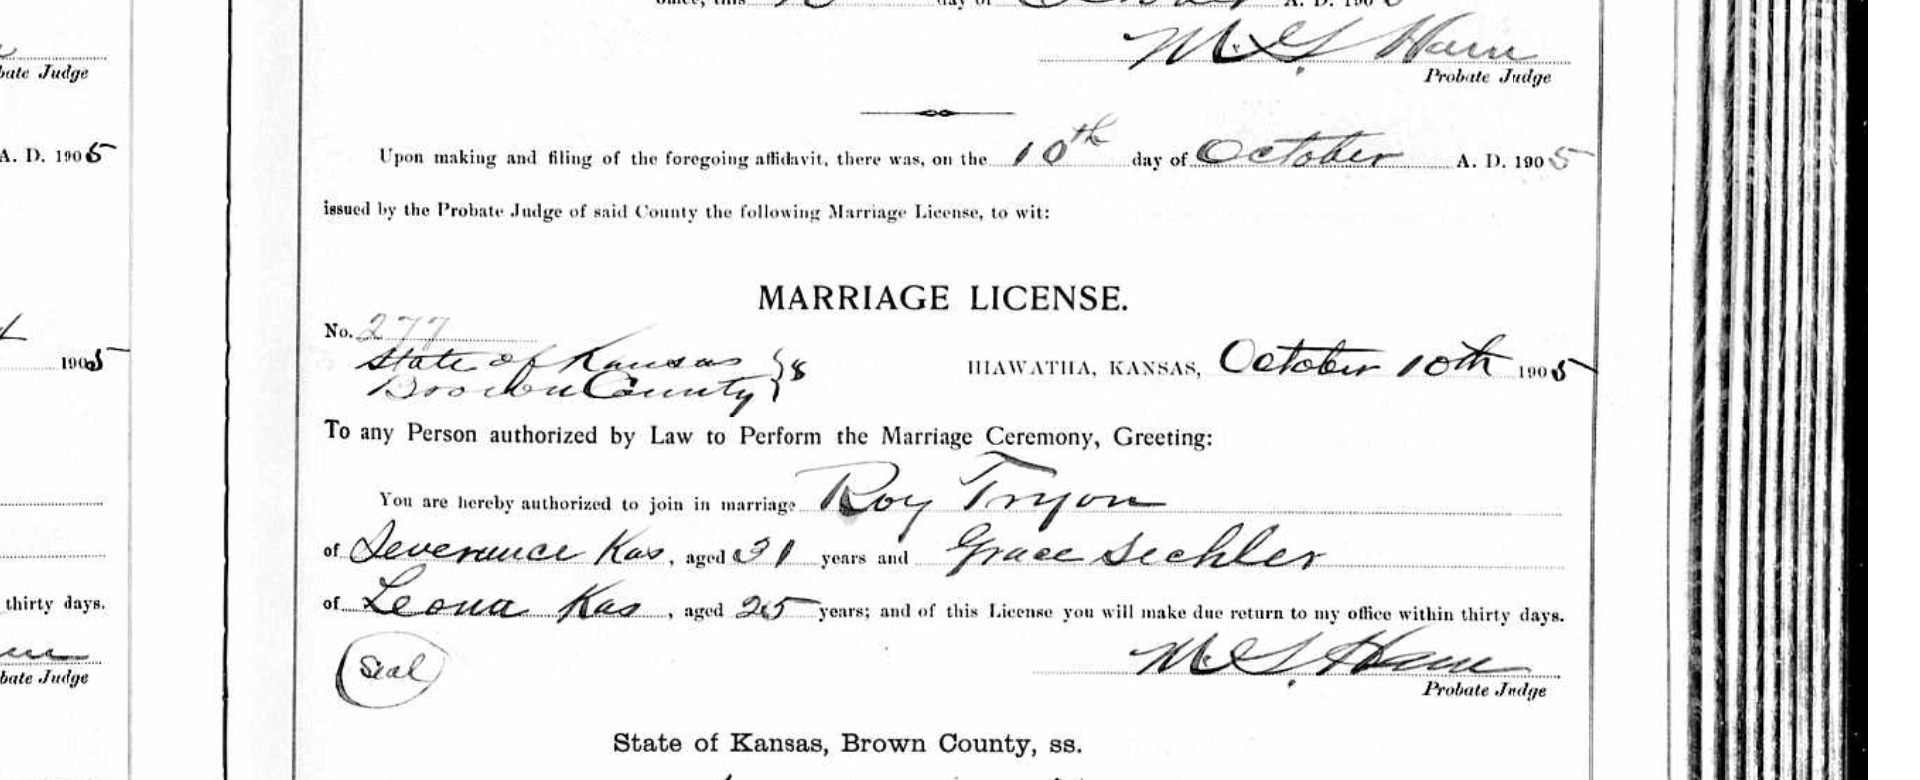 office, this day of October A. D. 190
M. S. Ham
bate Judge
Probate Judge
A. D. 1905
Upon making and filing of the foregoing affidavit, there was, on the 10th day of October A. D. 1905
issued by the Probate Judge of said County the following Marriage License, to wit:
MARRIAGE LICENSE.
No. 277
State of Kansas
1905
HIAWATHA, KANSAS, October 10th 1905
Brown County
To any Person authorized by Law to Perform the Marriage Ceremony, Greeting:
You are hereby authorized to join in marriage Roy Tryon
of Severance Kas, aged 31 years and Grace Sechler
thirty days.
of Leona Kas, aged 25 years; and of this License you will make due return to my office within thirty days.
Seal
M. S. Ham
bate Judge
Probate Judge
State of Kansas, Brown County, ss.